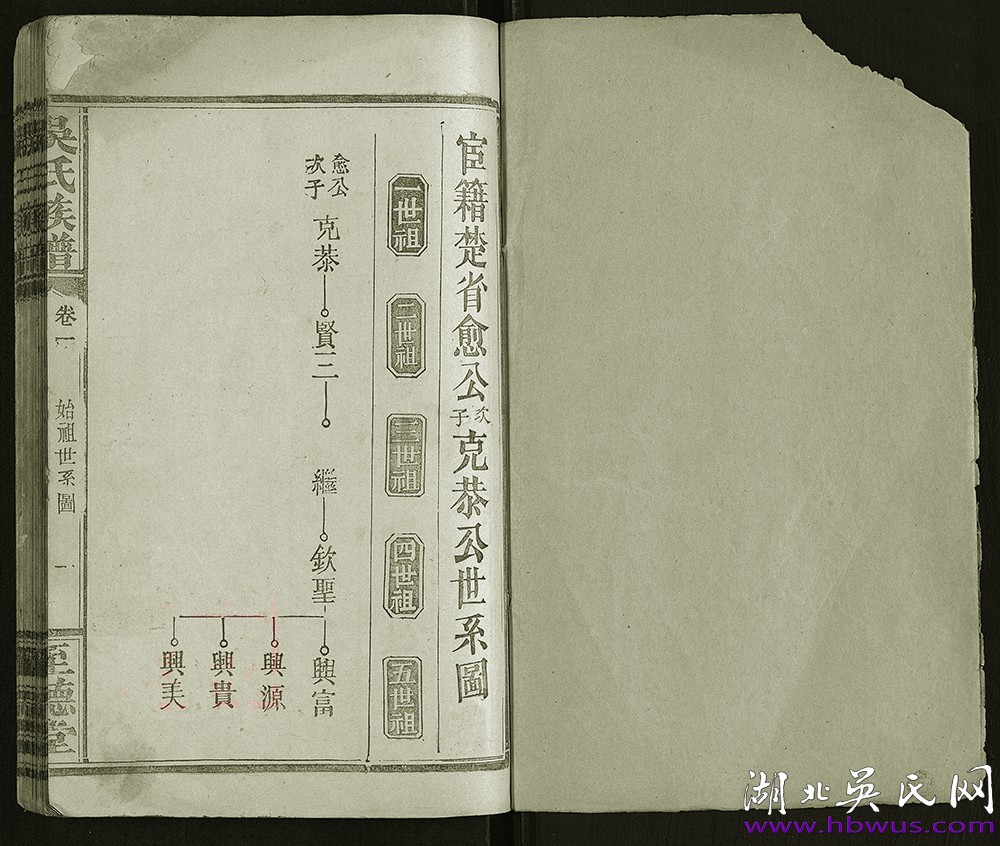 宦籍楚省愈公次子克恭公世系圖
一世祖
二世祖
三世祖
四世祖
五世祖
愈公
次子
克恭
賢三
繼
欽聖
興富
興源
興貴
興美
吳氏族譜
卷一
始祖世系圖
一
至德堂
湖北吳氏网
www.hbwus.com